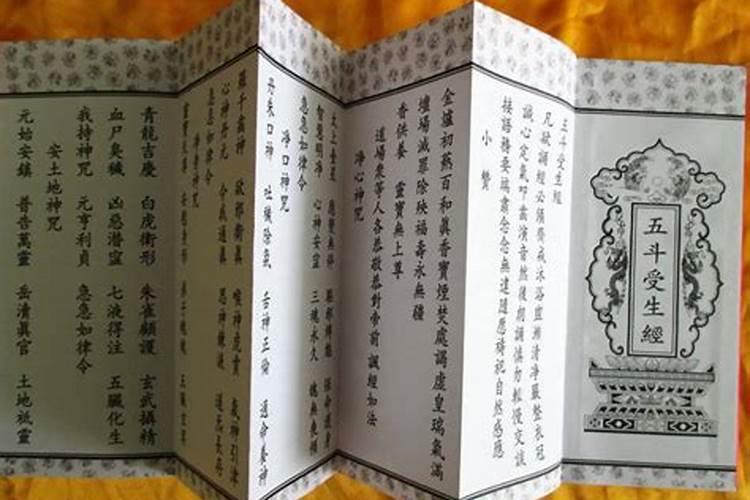 五斗受生經
五斗受生經
凡欲誦經必須齋戒沐浴盥漱清淨嚴整衣冠
誠心定氣叩齒演音然後朗誦慎勿輕慢交談
接語務要端肅念念無違隨應禱祀自然感應
小贊
金爐初熱百和眞香寶煙焚處謁虛皇瑞氣滿
壇場滅罪除殃福壽永無疆
香供養 靈寶無上尊
道場衆等人各恭敬恭對帝前 誦經如法
淨心神咒
太上台星 應變無停 驅邪縛魅 保命護身
智慧明淨 心神安寧 三魂永久 魄無喪傾
急急如律令
淨口神咒
丹朱口神 吐穢除氛 舌神正倫 通命養神
羅千齒神 卻邪衛眞 喉神虎賁 炁神引津
心神丹元 令我通眞 思神鍊液 道炁長存
急急如律令
淨身神咒
靈寶天尊 安慰身形 弟子魂魄 五臟玄冥
青龍吉慶 白虎衛形 朱雀顧護 玄武攝精
血尸臭穢 凶惡潛 七液得注 五臟化生
我持神咒 元亨利貞 急急如律令
安土地神咒
元始安鎮 普告萬靈 岳清眞官 土地祇靈